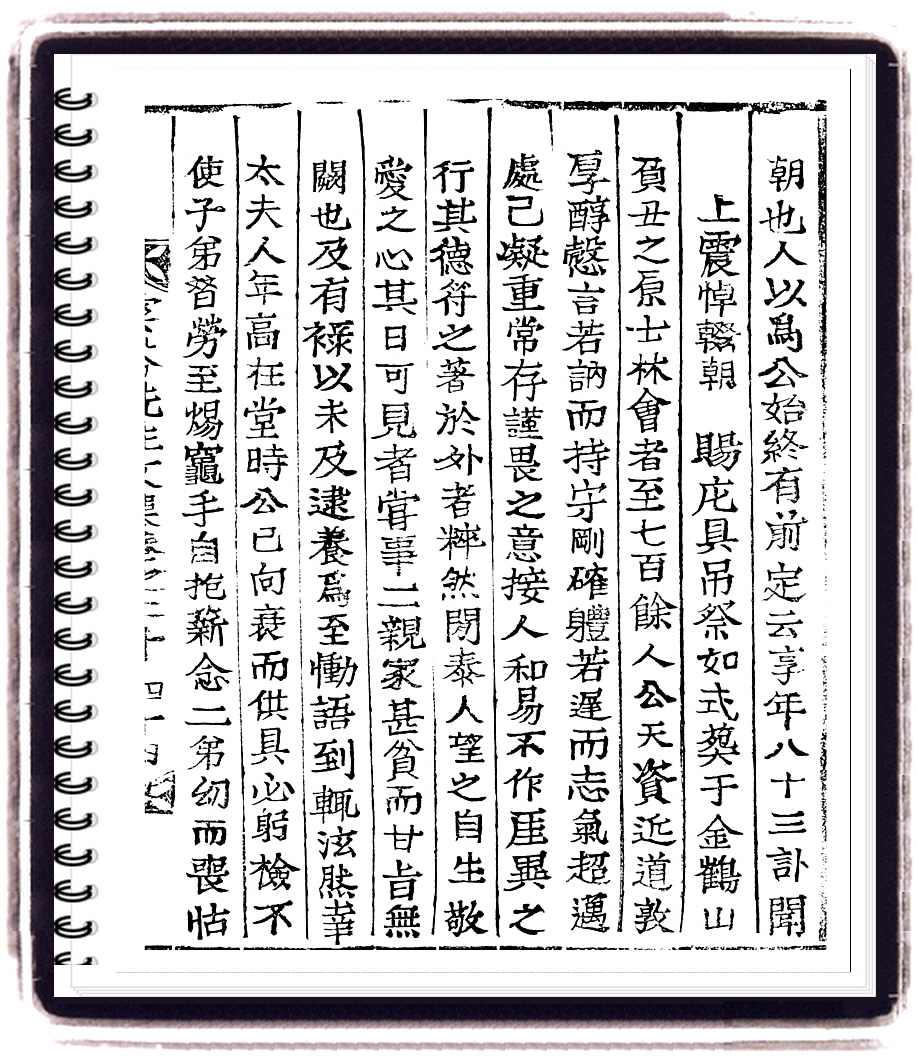 朝也人以爲公始終有前定云享年八十三訃聞
上震悼輟朝 賜庀具吊祭如式葬于金鶴山
負丑之原士林會者至七百餘人公天資近道敦
厚醇慤言若訥而持守剛確軆若遅而志氣超邁
處己凝重常存謹畏之意接人和易不作厓異之
行其德符之著於外者粹然閒泰人望之自生敬
愛之心其日可見者甞事二親家甚貧而甘旨無
闕也及有祿以未及逮養爲至慟語到輒泫然幸
太夫人年高在堂時公已向衰而供具必躬檢不
使子弟替勞至煬竈手自抱薪念二弟幼而喪怙
先生文集卷之二十 四十四